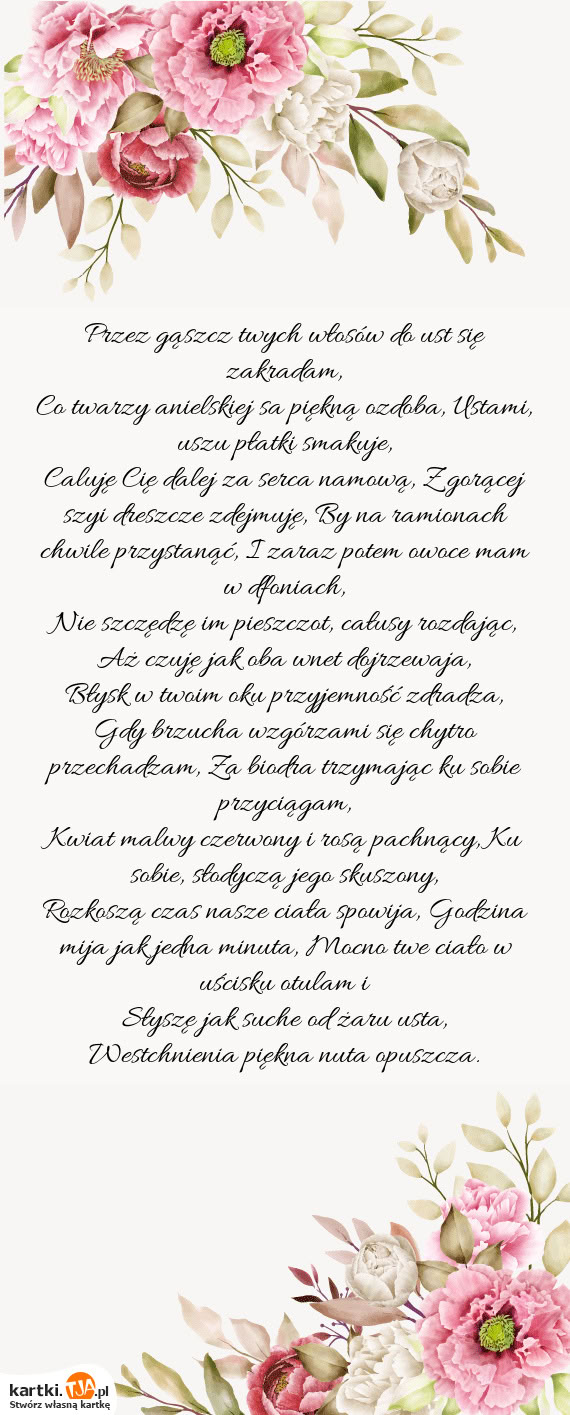 Przez gąszcz twych włosów do ust się
zakradam,
Co twarzy anielskiej sa piękną ozdoba, Ustami,
uszu płatki smakuje,
Caluję Cię dalej za serca namową, Z gorącej
szyi dreszcze zdejmuję, By na ramionach
chwile przystanąć, I zaraz potem owoce mam
w dłoniach,
Nie szczędzę im pieszczot, całusy rozdając,
Aż czuję jak oba wnet dojrzewaja,
Błysk w twoim oku przyjemność zdradza,
Gdy brzucha wzgórzami się chytro
przechadzam, Za biodra trzymając ku sobie
przyciągam,
Kwiat malwy czerwony i rosą pachnący, Ku
sobie, słodyczą jego skuszony,
Rozkoszą czas nasze ciała spowija, Godzina
mija jak jedna minuta, Mocno twe ciało w
uścisku otulam i
Słyszę jak suche od żaru usta,
Westchnienia piękna nuta opuszcza.
kartki.TJA.pl
Stwórz własną kartkę